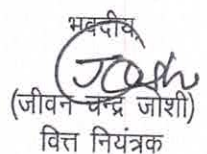 भवदीय,
(जीवन चन्द्र जोशी)
वित्त नियंत्रक